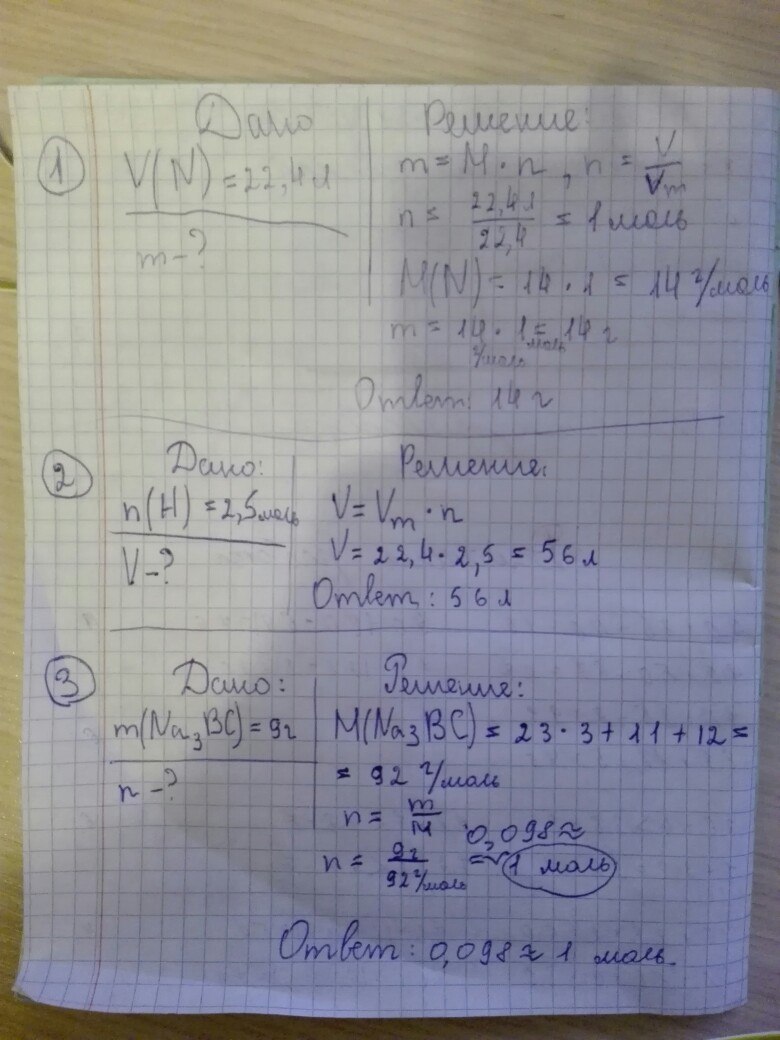 1
Дано
V(N) = 22,4 л
m - ?
Решение:
m = M · n, n = V/Vm
n = 22,4 л/22,4 = 1 моль
M(N) = 14 · 1 = 14 г/моль
m = 14 г/моль · 1 моль = 14 г
Ответ: 14 г
2
Дано:
n(H) = 2,5 моль
V - ?
Решение:
V = Vm · n
V = 22,4 · 2,5 = 56 л
Ответ: 56 л
3
Дано:
m(Na₃BC) = 9г
n - ?
Решение:
M(Na₃BC) = 23 · 3 + 11 + 12 =
= 92 г/моль
n = m/M
n = 9г/92 г/моль = 0,098 ≈ 1 моль
Ответ: 0,098 ≈ 1 моль.